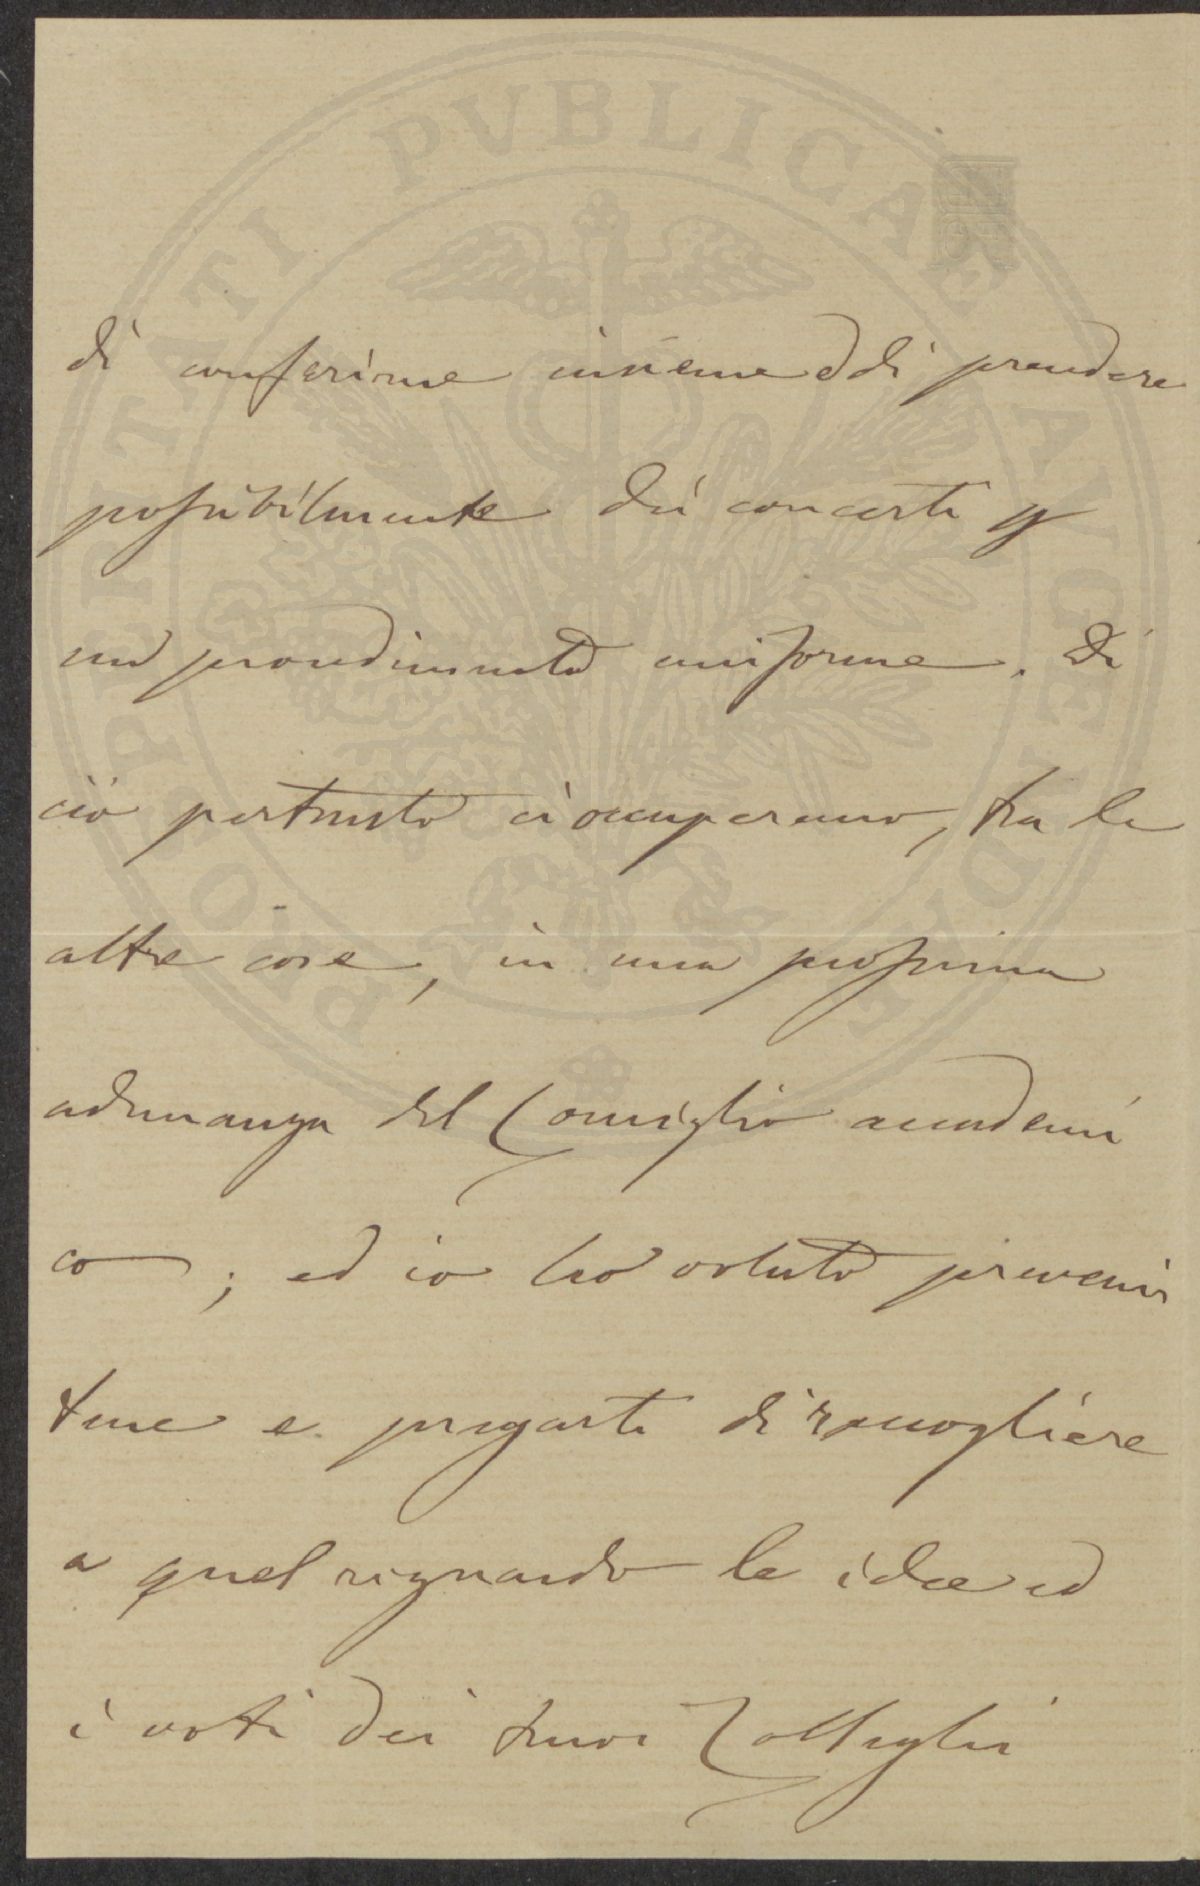 PROSPERITATI PVBLICAE AVGENDAE
di conferirne insieme e di prendere
possibilmente dei concerti p
un provvedimento uniforme. Di
ciò pertanto ci occuperemo, tra le
altre cose, in una prossima
adunanza del Consiglio accademi
co ; ed io ho voluto prevenir
tene e pregarti di raccogliere
a quel riguardo le idee ed
i voti dei tuoi Colleghi